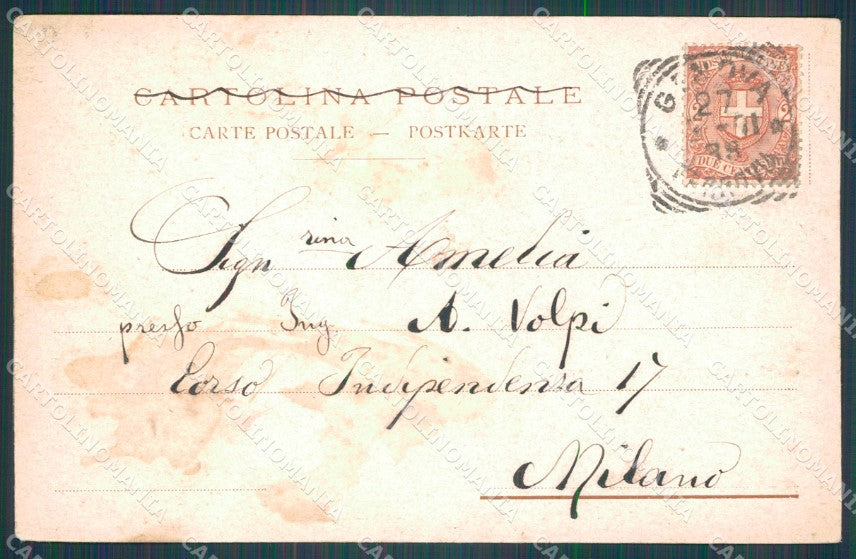 CARTOLINA POSTALE
CARTE POSTALE — POSTKARTE
GENOVA
27
01
2 2
DUE CENT
Sign rina Amelia
presso Ing. A. Volpi
Corso Indipendenza 17
Milano
CARTOLINOMANIA